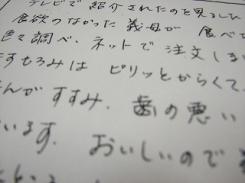 テレビで紹介されたのを見まし
食欲のなかった義母が 食べ
色々調べ、ネットで注文しま
すもろみは ピリッとからくて、
んがすすみ、歯の悪い
います。 おいしいので